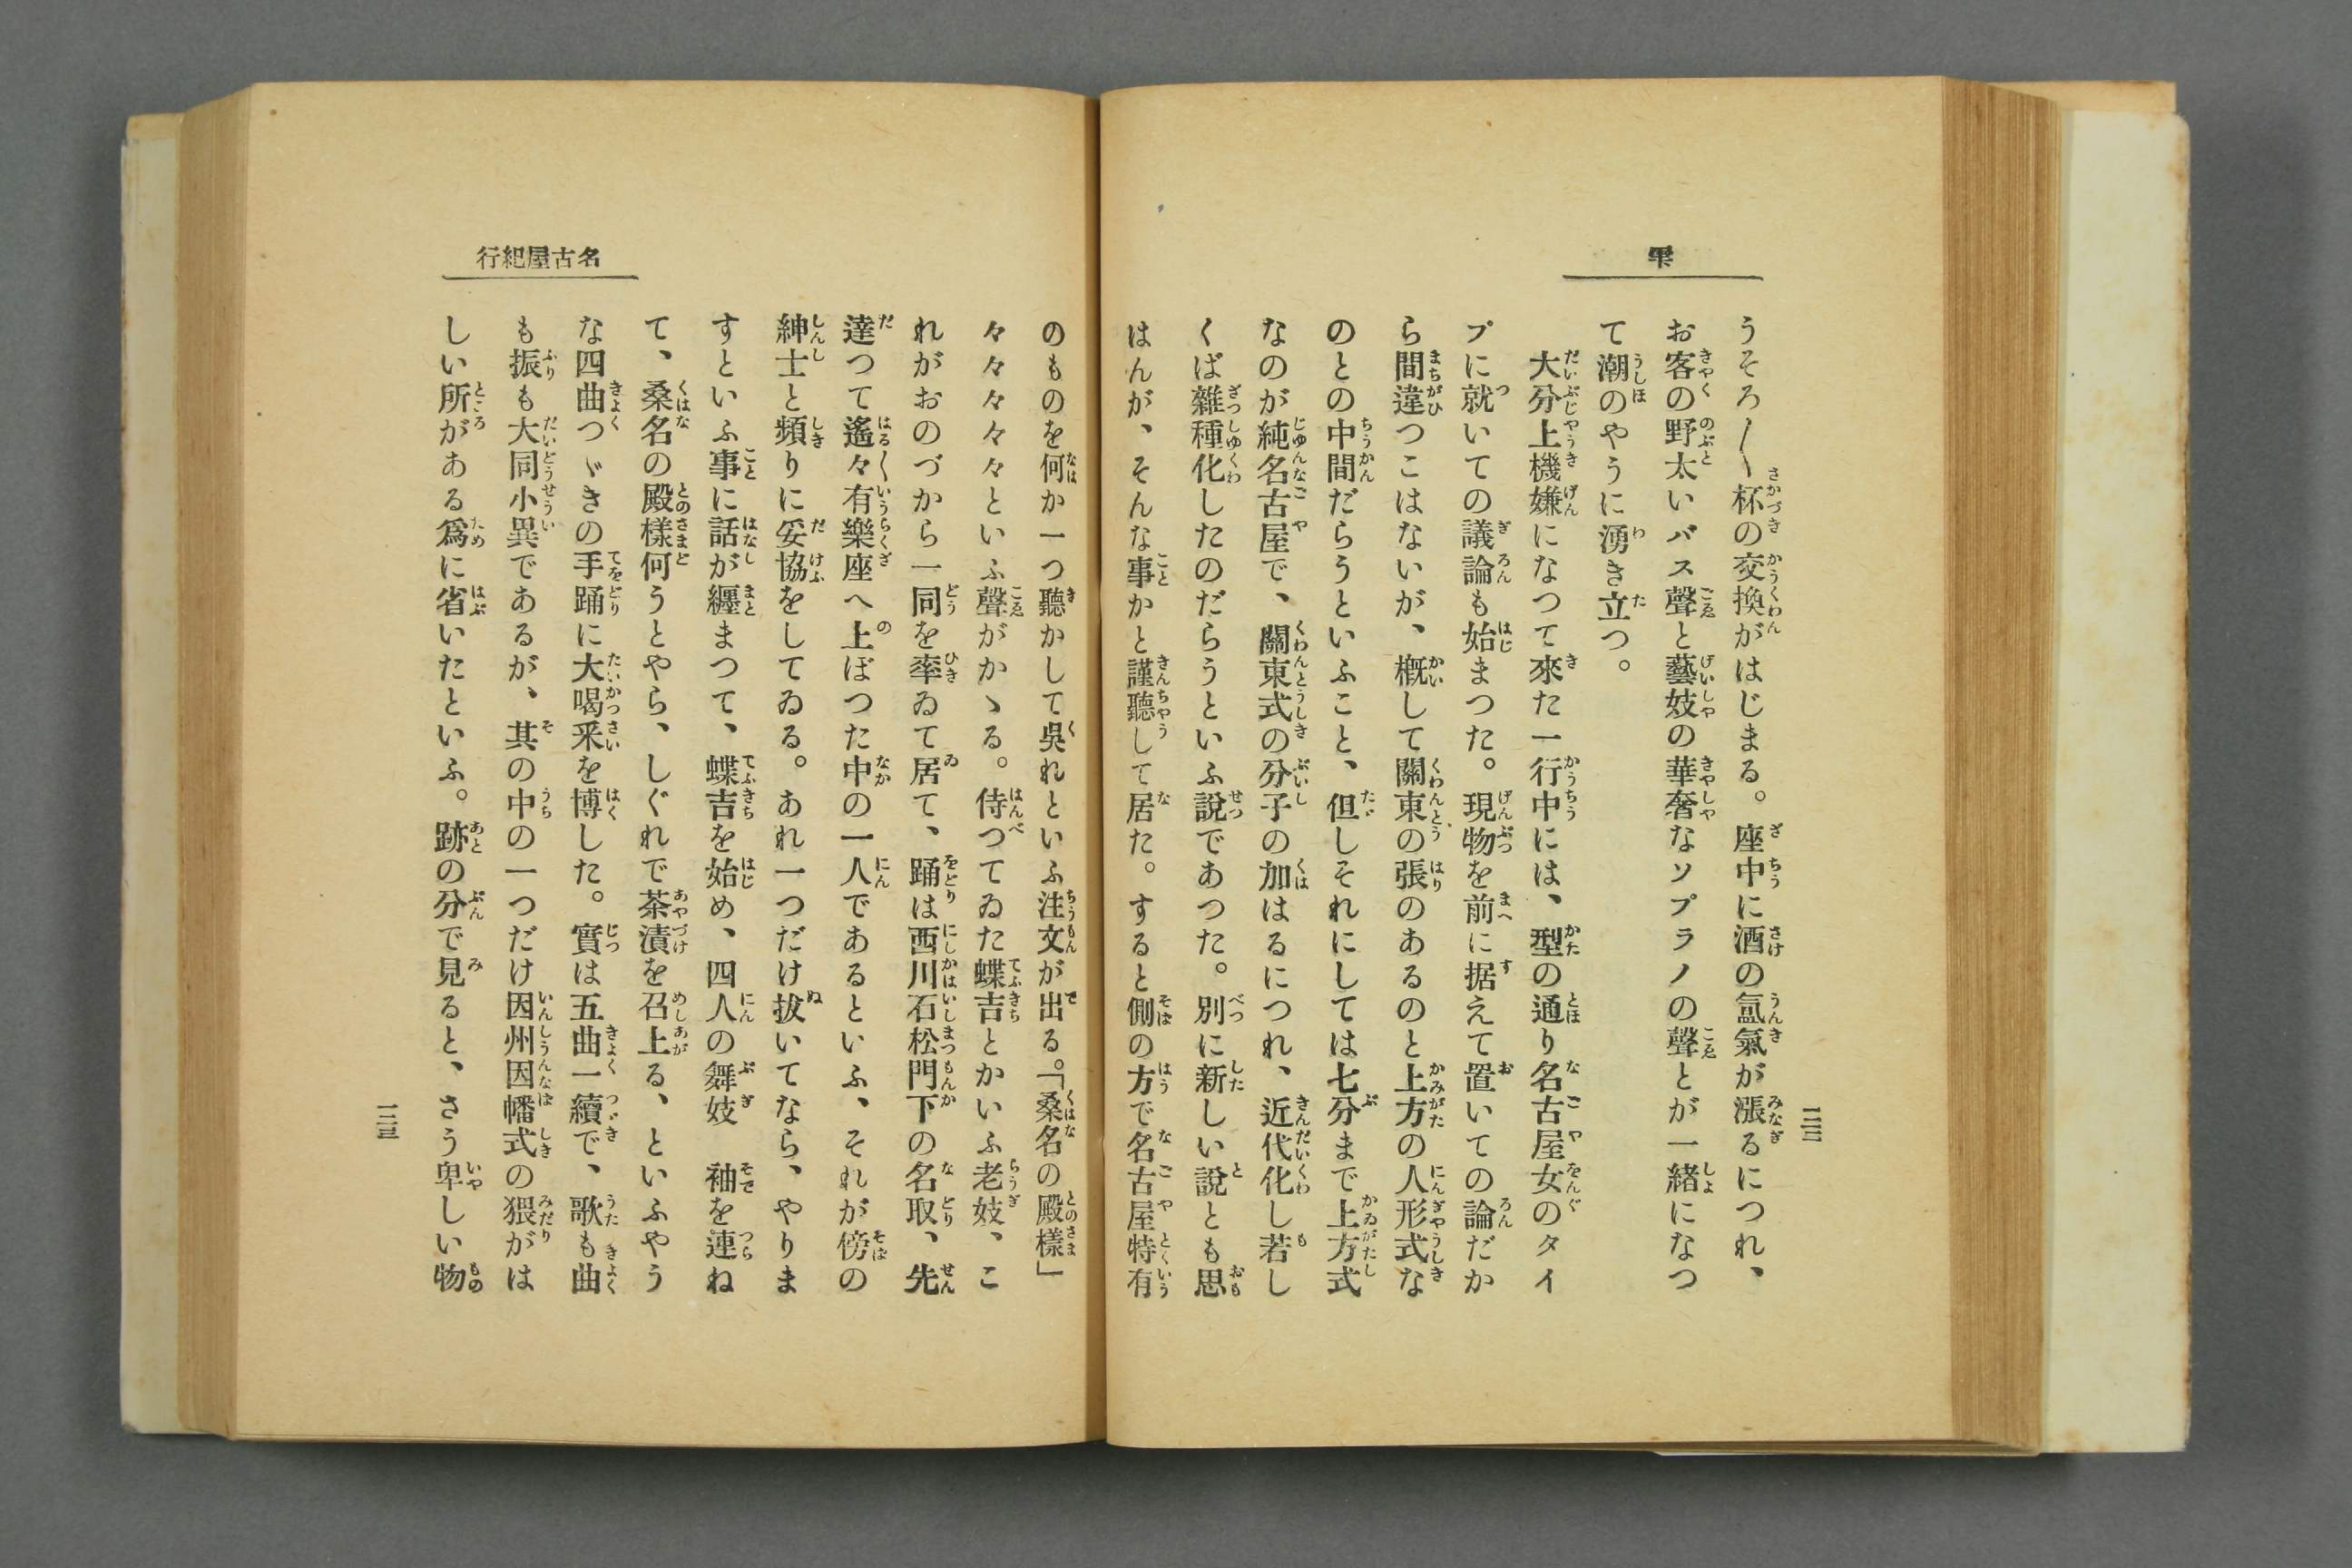 うそろ〳〵杯の交換がはじまる。座中に酒の氳氣が漲るにつれ、
お客の野太いバス聲と藝妓の華奢なソプラノの聲とが一緒になつ
て潮のやうに湧き立つ。
大分上機嫌になつて來た一行中には、型の通り名古屋女のタイ
プに就いての議論も始まつた。現物を前に据えて置いての論だか
ら間違つこはないが、概して關東の張のあるのと上方の人形式な
のとの中間だらうといふこと、但しそれにしては七分まで上方式
なのが純名古屋で、關東式の分子の加はるにつれ、近代化し若し
くば雜種化したのだらうといふ說であつた。別に新しい說とも思
はんが、そんな事かと謹聽して居た。すると側の方で名古屋特有
一三二
名古屋紀行
のものを何か一つ聽かして吳れといふ注文が出る。「桑名の殿樣」
々々々々々といふ聲がかゝる。侍つてゐた蝶吉とかいふ老妓、こ
れがおのづから一同を率ゐて居て、踊は西川石松門下の名取、先
達つて遙々有樂座へ上ぼつた中の一人であるといふ、それが傍の
紳士と頻りに妥協をしてゐる。あれ一つだけ拔いてなら、やりま
すといふ事に話が纒まつて、蝶吉を始め、四人の舞妓　袖を連ね
て、桑名の殿樣何うとやら、しぐれで茶漬を召上る、といふやう
な四曲つゞきの手踊に大喝釆を博した。實は五曲一續で、歌も曲
も振も大同小異であるが、其の中の一つだけ因州因幡式の猥がは
しい所がある爲に省いたといふ。跡の分で見ると、さう卑しい物
一三三